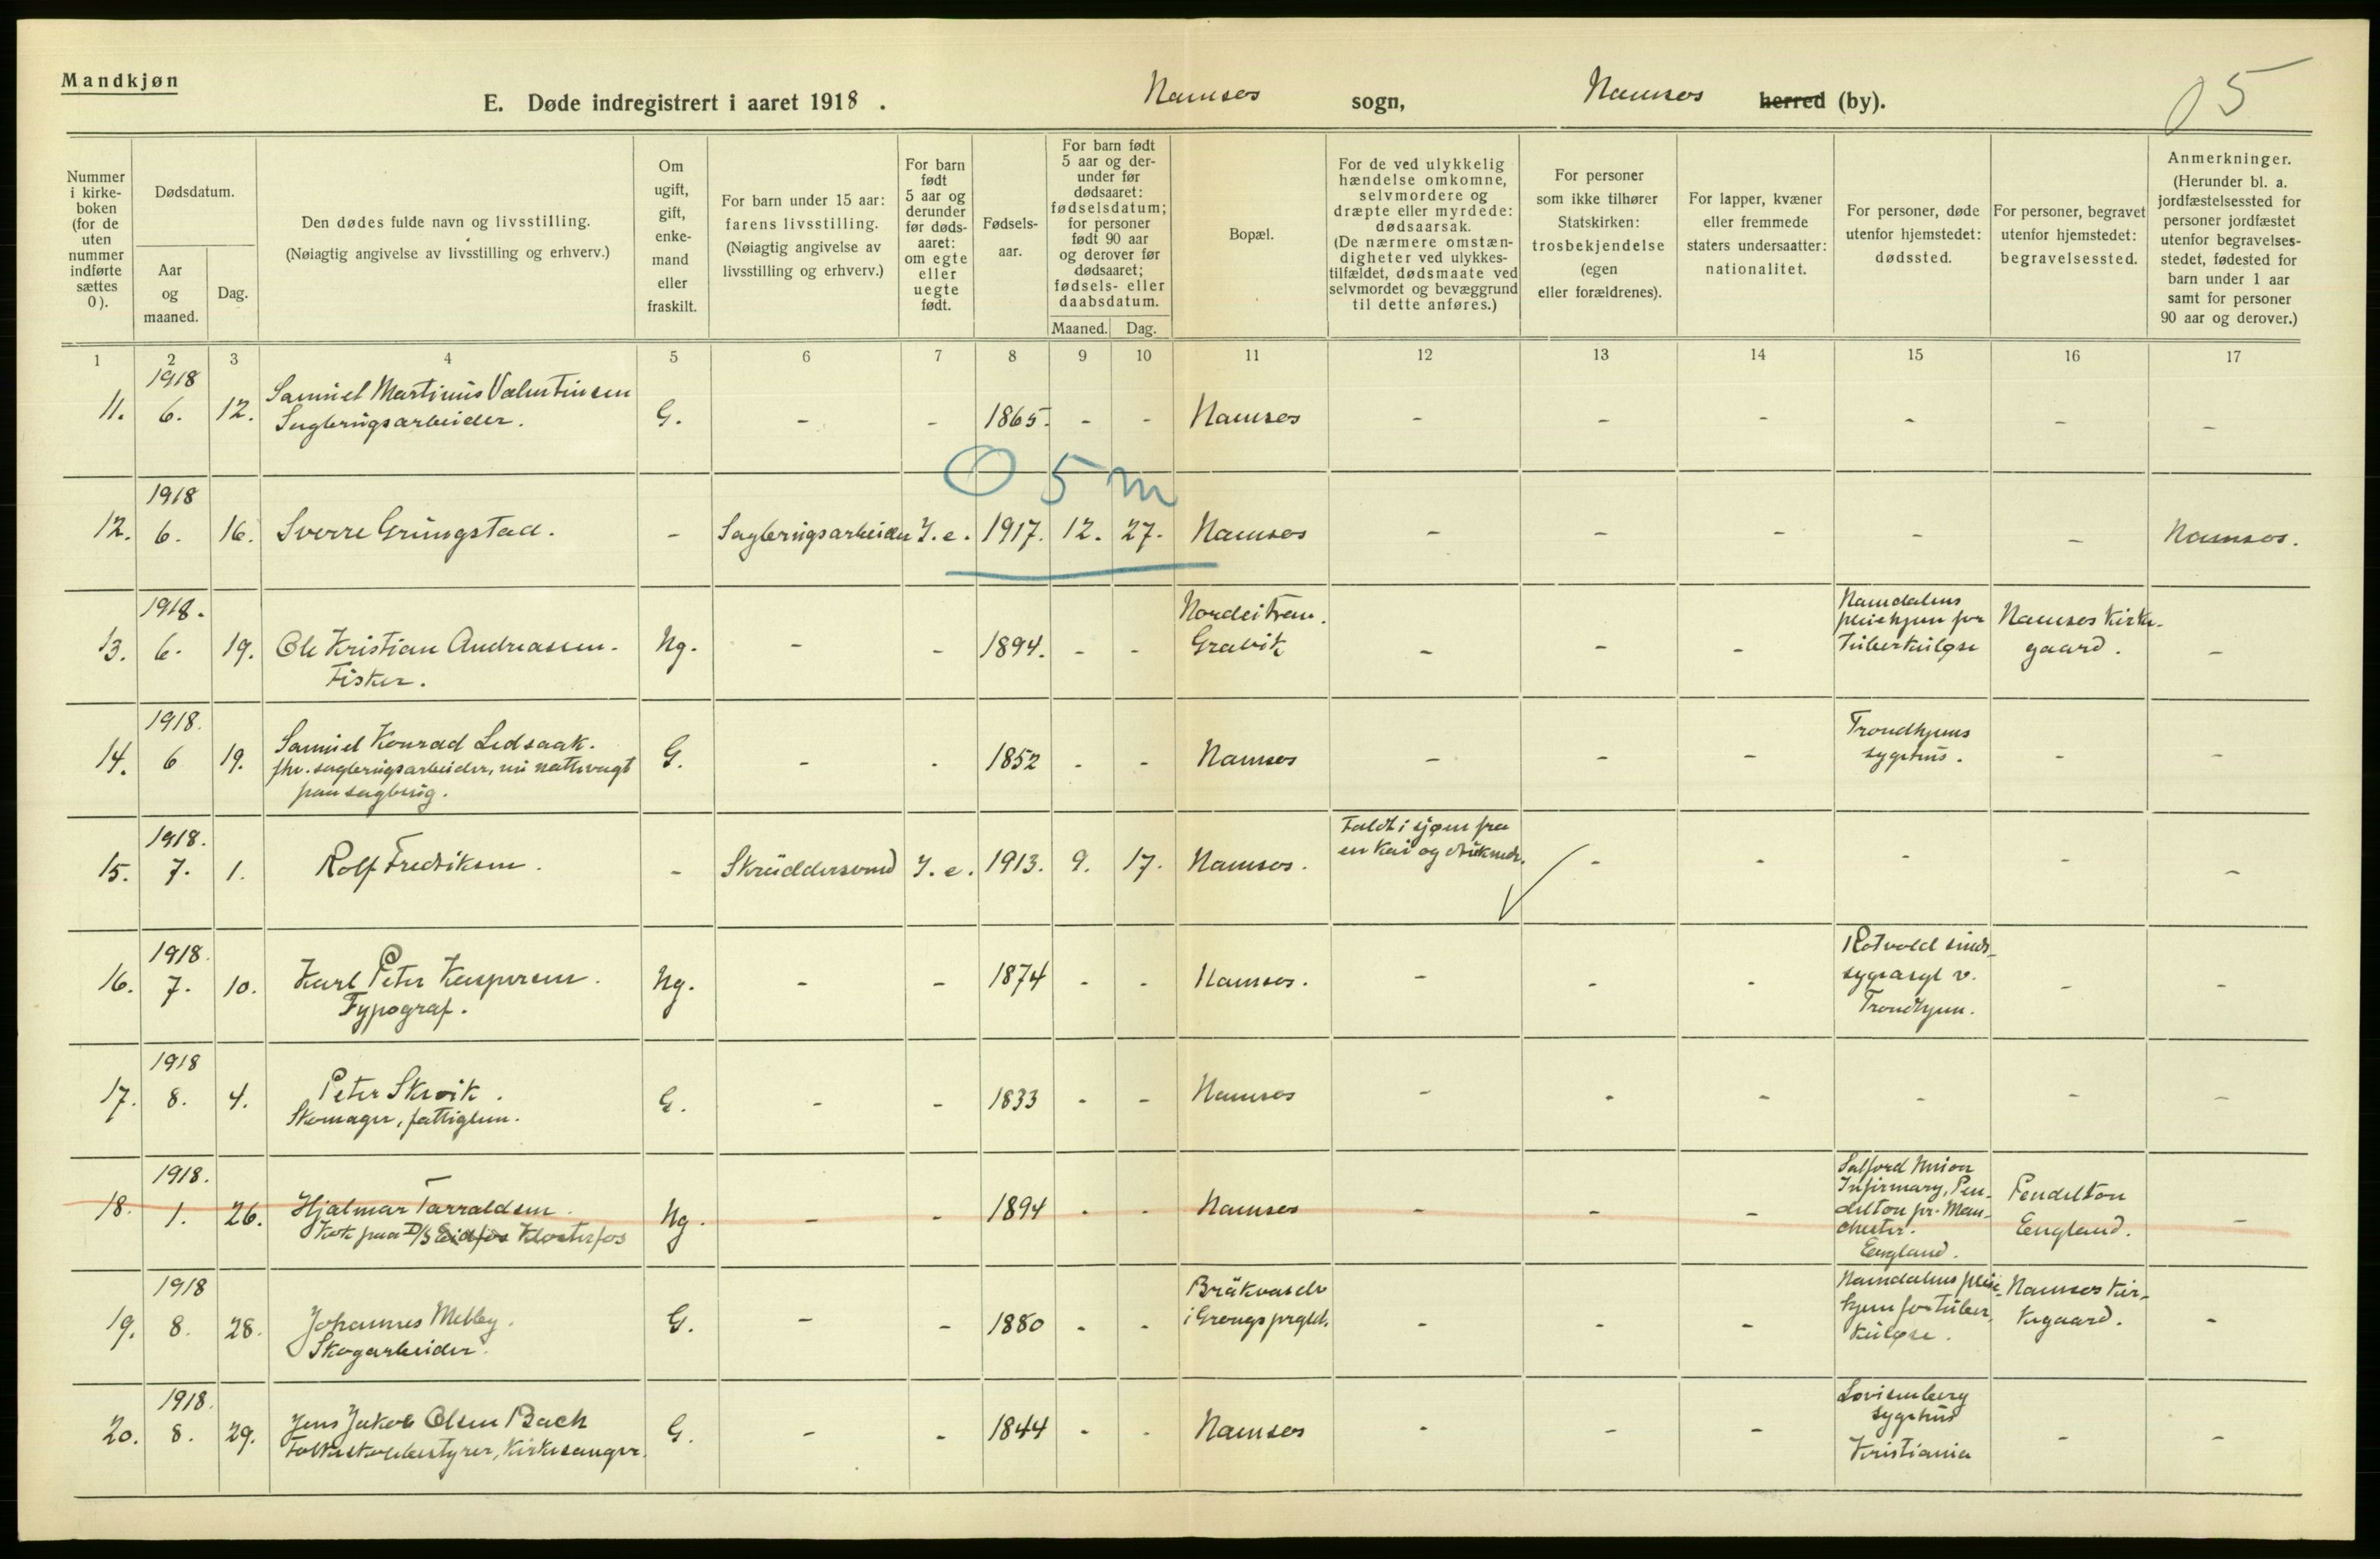 Mandkjøn
E. Døde indregistrert i aaret 1918.
Namsos sogn,
Namsos herred (by).
05
Nummer i kirke-boken (for de uten nummer indførte sættes 0).
Dødsdatum.
Aar og maaned.
Dag.
Den dødes fulde navn og livsstilling.
(Nøiagtig angivelse av livsstilling og erhverv.)
Om ugift, gift, enke-mand eller fraskilt.
For barn under 15 aar: farens livsstilling.
(Nøiagtig angivelse av livsstilling og erhverv.)
For barn født 5 aar og derunder før døds-aaret: om egte eller uegte født.
Fødsels-aar.
For barn født 5 aar og der-under før dødsaaret: fødselsdatum; for personer født 90 aar og derover før dødsaaret; fødsels- eller daabsdatum.
Maaned.
Dag.
Bopæl.
For de ved ulykkelig hændelse omkomne, selvmordere og dræpte eller myrdede: dødsaarsak.
(De nærmere omstæn-digheter ved ulykkes-tilfældet, dødsmaate ved selvmordet og bevæggrund til dette anføres.)
For personer som ikke tilhører Statskirken: trosbekjendelse (egen eller forældrenes).
For lapper, kvæner eller fremmede staters undersaatter: nationalitet.
For personer, døde utenfor hjemstedet: dødssted.
For personer, begravet utenfor hjemstedet: begravelsessted.
Anmerkninger.
(Herunder bl. a. jordfæstelsessted for personer jordfæstet utenfor begravelses-stedet, fødested for barn under 1 aar samt for personer 90 aar og derover.)
1 2 3 4 5 6 7 8 9 10 11 12 13 14 15 16 17
1918
11. 6. 12. Samuel Martinus Valentinsen G. - - 1865. - - Namsos - - - - - -
Sagbrugsarbeider.
0 5 m
1918
12. 6. 16. Sverre Grungstad. - Sagbrugsarbeider I. e. 1917. 12. 27. Namsos - - - - - Namsos.
1918.
13. 6. 19. Ole Kristian Andreassen. Ug. - - 1894. - -
Fisker.
Gravik - - -
Namdalens
pleiehjem for
tuberkuløse
Namsos Kirke-
gaard. -
1918.
14. 6 19. Samuel Konrad Ledsaak. G. - - 1852 - - Namsos - - -
fhv. sagbrugsarbeider, nu nattevagt
paa sagbrug.
Trondhjems
sygehus. - -
1918.
15. 7. 1. Rolf Fredriksen. - Skræddersvend I. e. 1913. 9. 17. Namsos.
Faldt i sjøen fra
en kai og druknede. - - - - -
1918.
16. 7. 10. Karl Peter Kaspersen. Ug. - - 1874 - - Namsos. - - -
Typograf.
Rotvold sinds-
sygeasyl v.
Trondhjem. - -
1918
17. 8. 4. Peter Skrøik. G. - - 1833 - - Namsos - - - - - -
Skomager, fattiglem.
1918.
18. 1. 26. Hjalmar Tarraldsen. Ug. - - 1894 - - Namsos - - -
Kok paa D/S Eidsfos Klosterfos
Salford Union
Infirmary, Pen-
delton pr. Man-
chester.
England.
Pendelton
England. -
1918
19. 8. 28. Johannes Melby. G. - - 1880 - -
Skogarbeider.
i Grongs prgjld. - - -
Namdalens pleie-
hjem for tuber-
kuløse.
Namsos Kir-
kegaard. -
1918.
20. 8. 29. Jens Jakob Olsen Bach G. - - 1844 - - Namsos - - -
Folkeskolebestyrer, Kirkesanger.
Lovisenberg
sygehus
Kristiania - -